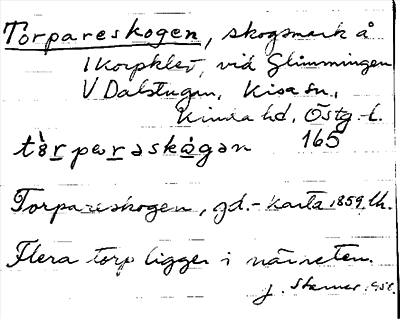 Torpareskogen, skogsmark å
1 Korpklev, vid Glimmingen
V Dalstugan, Kisa sn.,
Kinda hd, Östg.-L.
165
tòrparəskågən
Torpareskogen, gd.-karta 1859, Uh.
Flera torp ligger i närheten.
J.